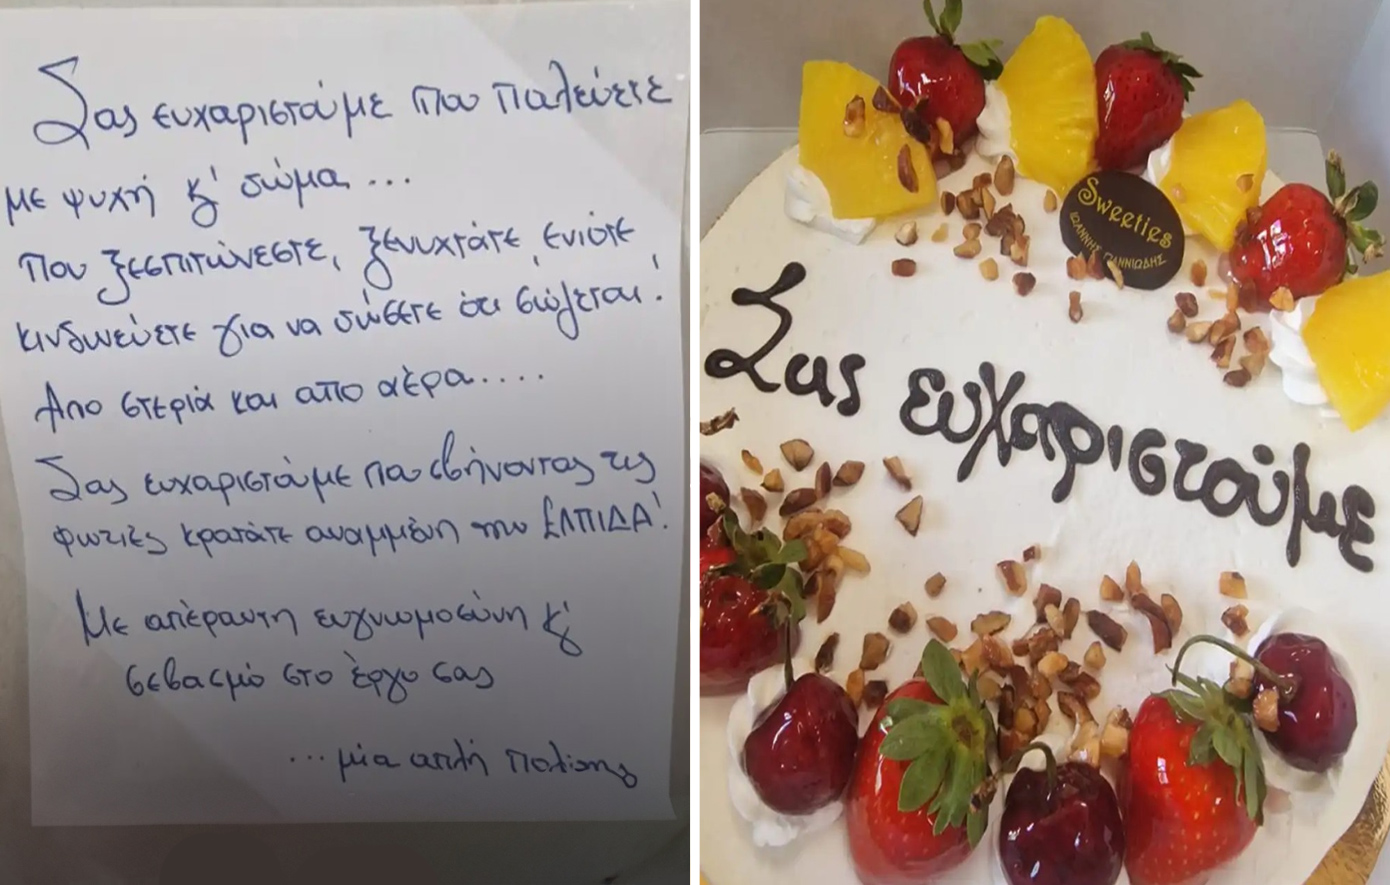 Σας ευχαριστούμε που παλεύετε
με ψυχή κ' σώμα...
που ξεσπιτώνεστε, ξενυχτάτε, ενίοτε
κινδυνεύετε για να σώσετε ότι σώζεται!
Απο στεριά και απο αέρα....
Σας ευχαριστούμε που σβήνοντας τις
φωτιές κρατάτε αναμμένη την ΕΛΠΙΔΑ!
Με απέραντη ευγνωμοσύνη κ'
σεβασμό στο έργο σας
...μία απλή πολίτης
Sweeties
ΙΩΑΝΝΗΣ ΓΙΑΝΝΙΩΔΗΣ
Σας ευχαριστούμε